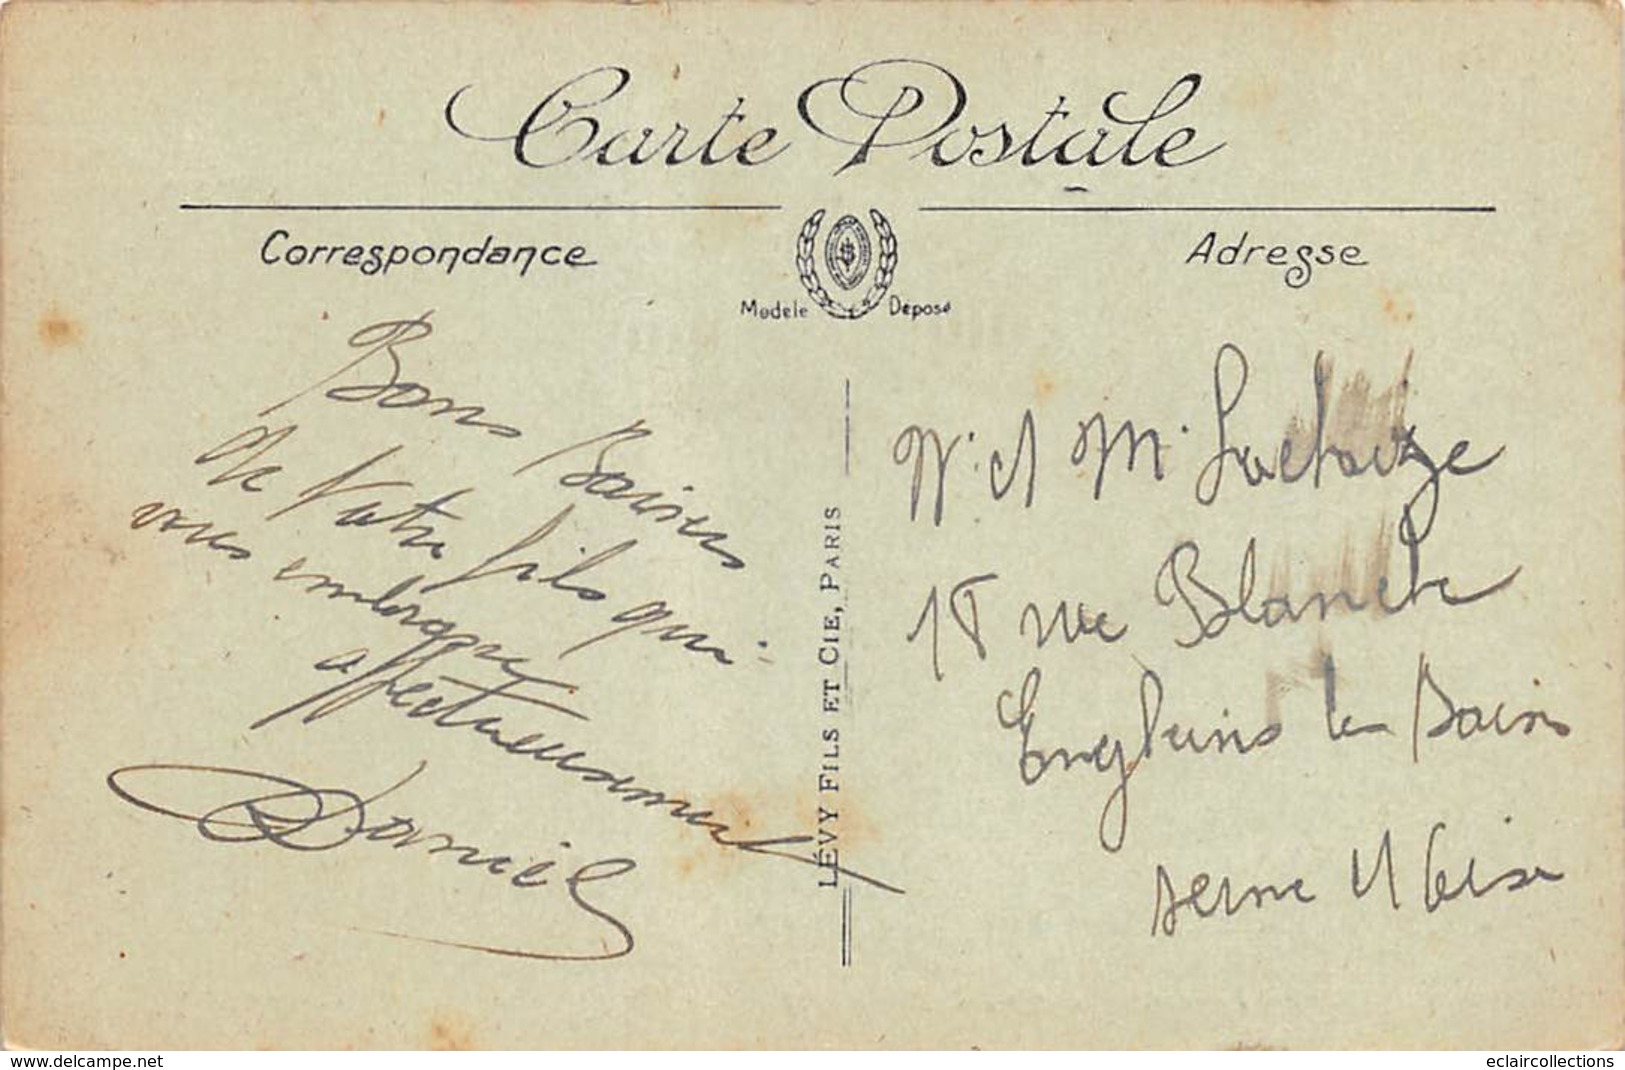 Carte Postale
Correspondance
Adresse
Modèle Déposé
Bons Baisers
de Votre fils qui
vous embrasse
affectueusement
Daniel
LÉVY FILS ET CIE, PARIS
et M.
18 rue Blanche
Enghiens les Bains
Seine et Oise
www.delcampe.net
eclaircollections